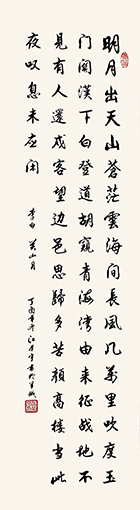 明月出天山蒼茫雲海間長風几萬里吹度玉
門関漢下白登道胡窺青海湾由来征战地不
見有人還戍客望边邑思歸多苦顔高楼當此
夜叹息未应闲
李白 关山月
丁酉年冬江